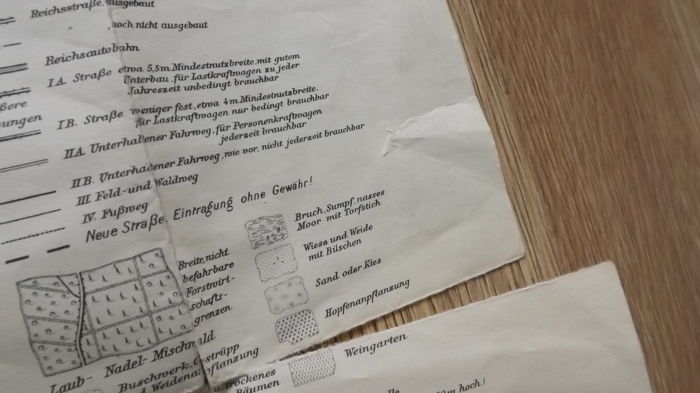 Reichsstraße, ausgebaut
" , noch nicht ausgebaut
Reichsautobahn
IA. Straße etwa 5,5m Mindestnutzbreite, mit gutem
Unterbau, für Lastkraftwagen zu jeder
Jahreszeit unbedingt brauchbar
IB. Straße weniger fest, etwa 4m Mindestnutzbreite,
für Lastkraftwagen nur bedingt brauchbar
IIA. Unterhaltener Fahrweg, für Personenkraftwagen
jederzeit brauchbar
IIB. Unterhaltener Fahrweg, wie vor, nicht jederzeit brauchbar
III. Feld- und Waldweg
IV. Fußweg
Neue Straße, Eintragung ohne Gewähr!
Breite, nicht
befahrbare
Forstwirt-
schafts-
grenzen
Laub- Nadel- Mischwald
Bruch, Sumpf, nasses
Moor mit Torfstich
Wiese und Weide
mit Büschen
Sand oder Kies
Hopfenanpflanzung
Weingarten
Buschwerk, Gestrüpp
und Weidenanpflanzung
trockenes
Bäumen
hoch)